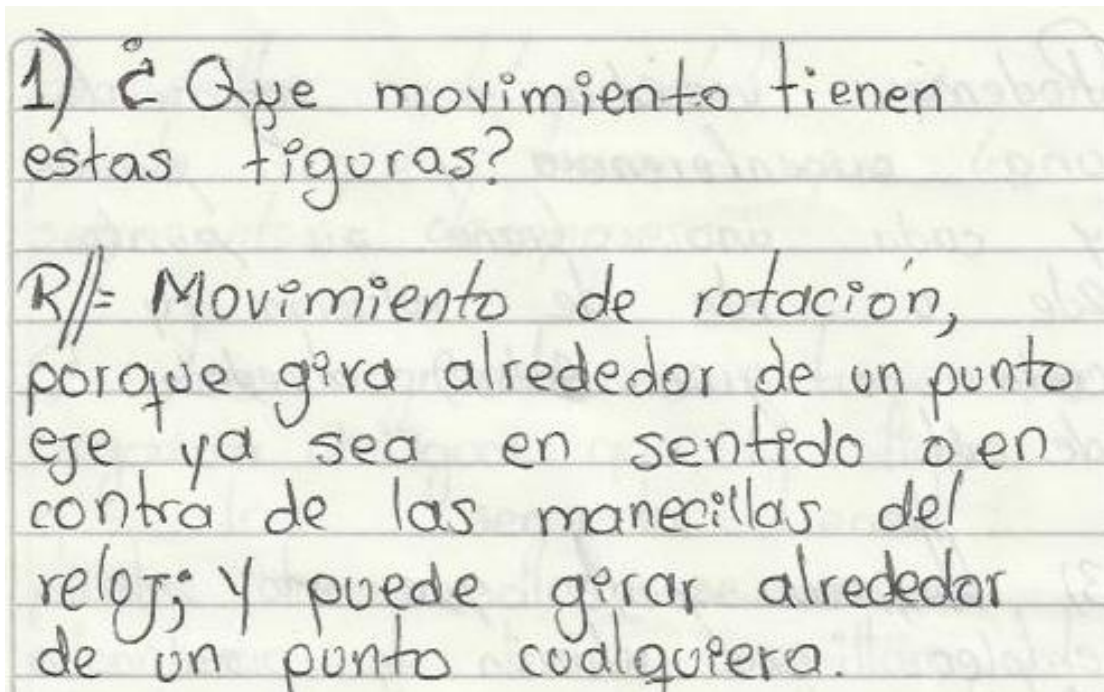 1) ¿Que movimiento tienen
estas figuras?
R//= Movimiento de rotación,
porque gira alrededor de un punto
eje ya sea en sentido o en
contra de las manecillas del
reloj; Y puede girar alrededor
de un punto cualquiera.